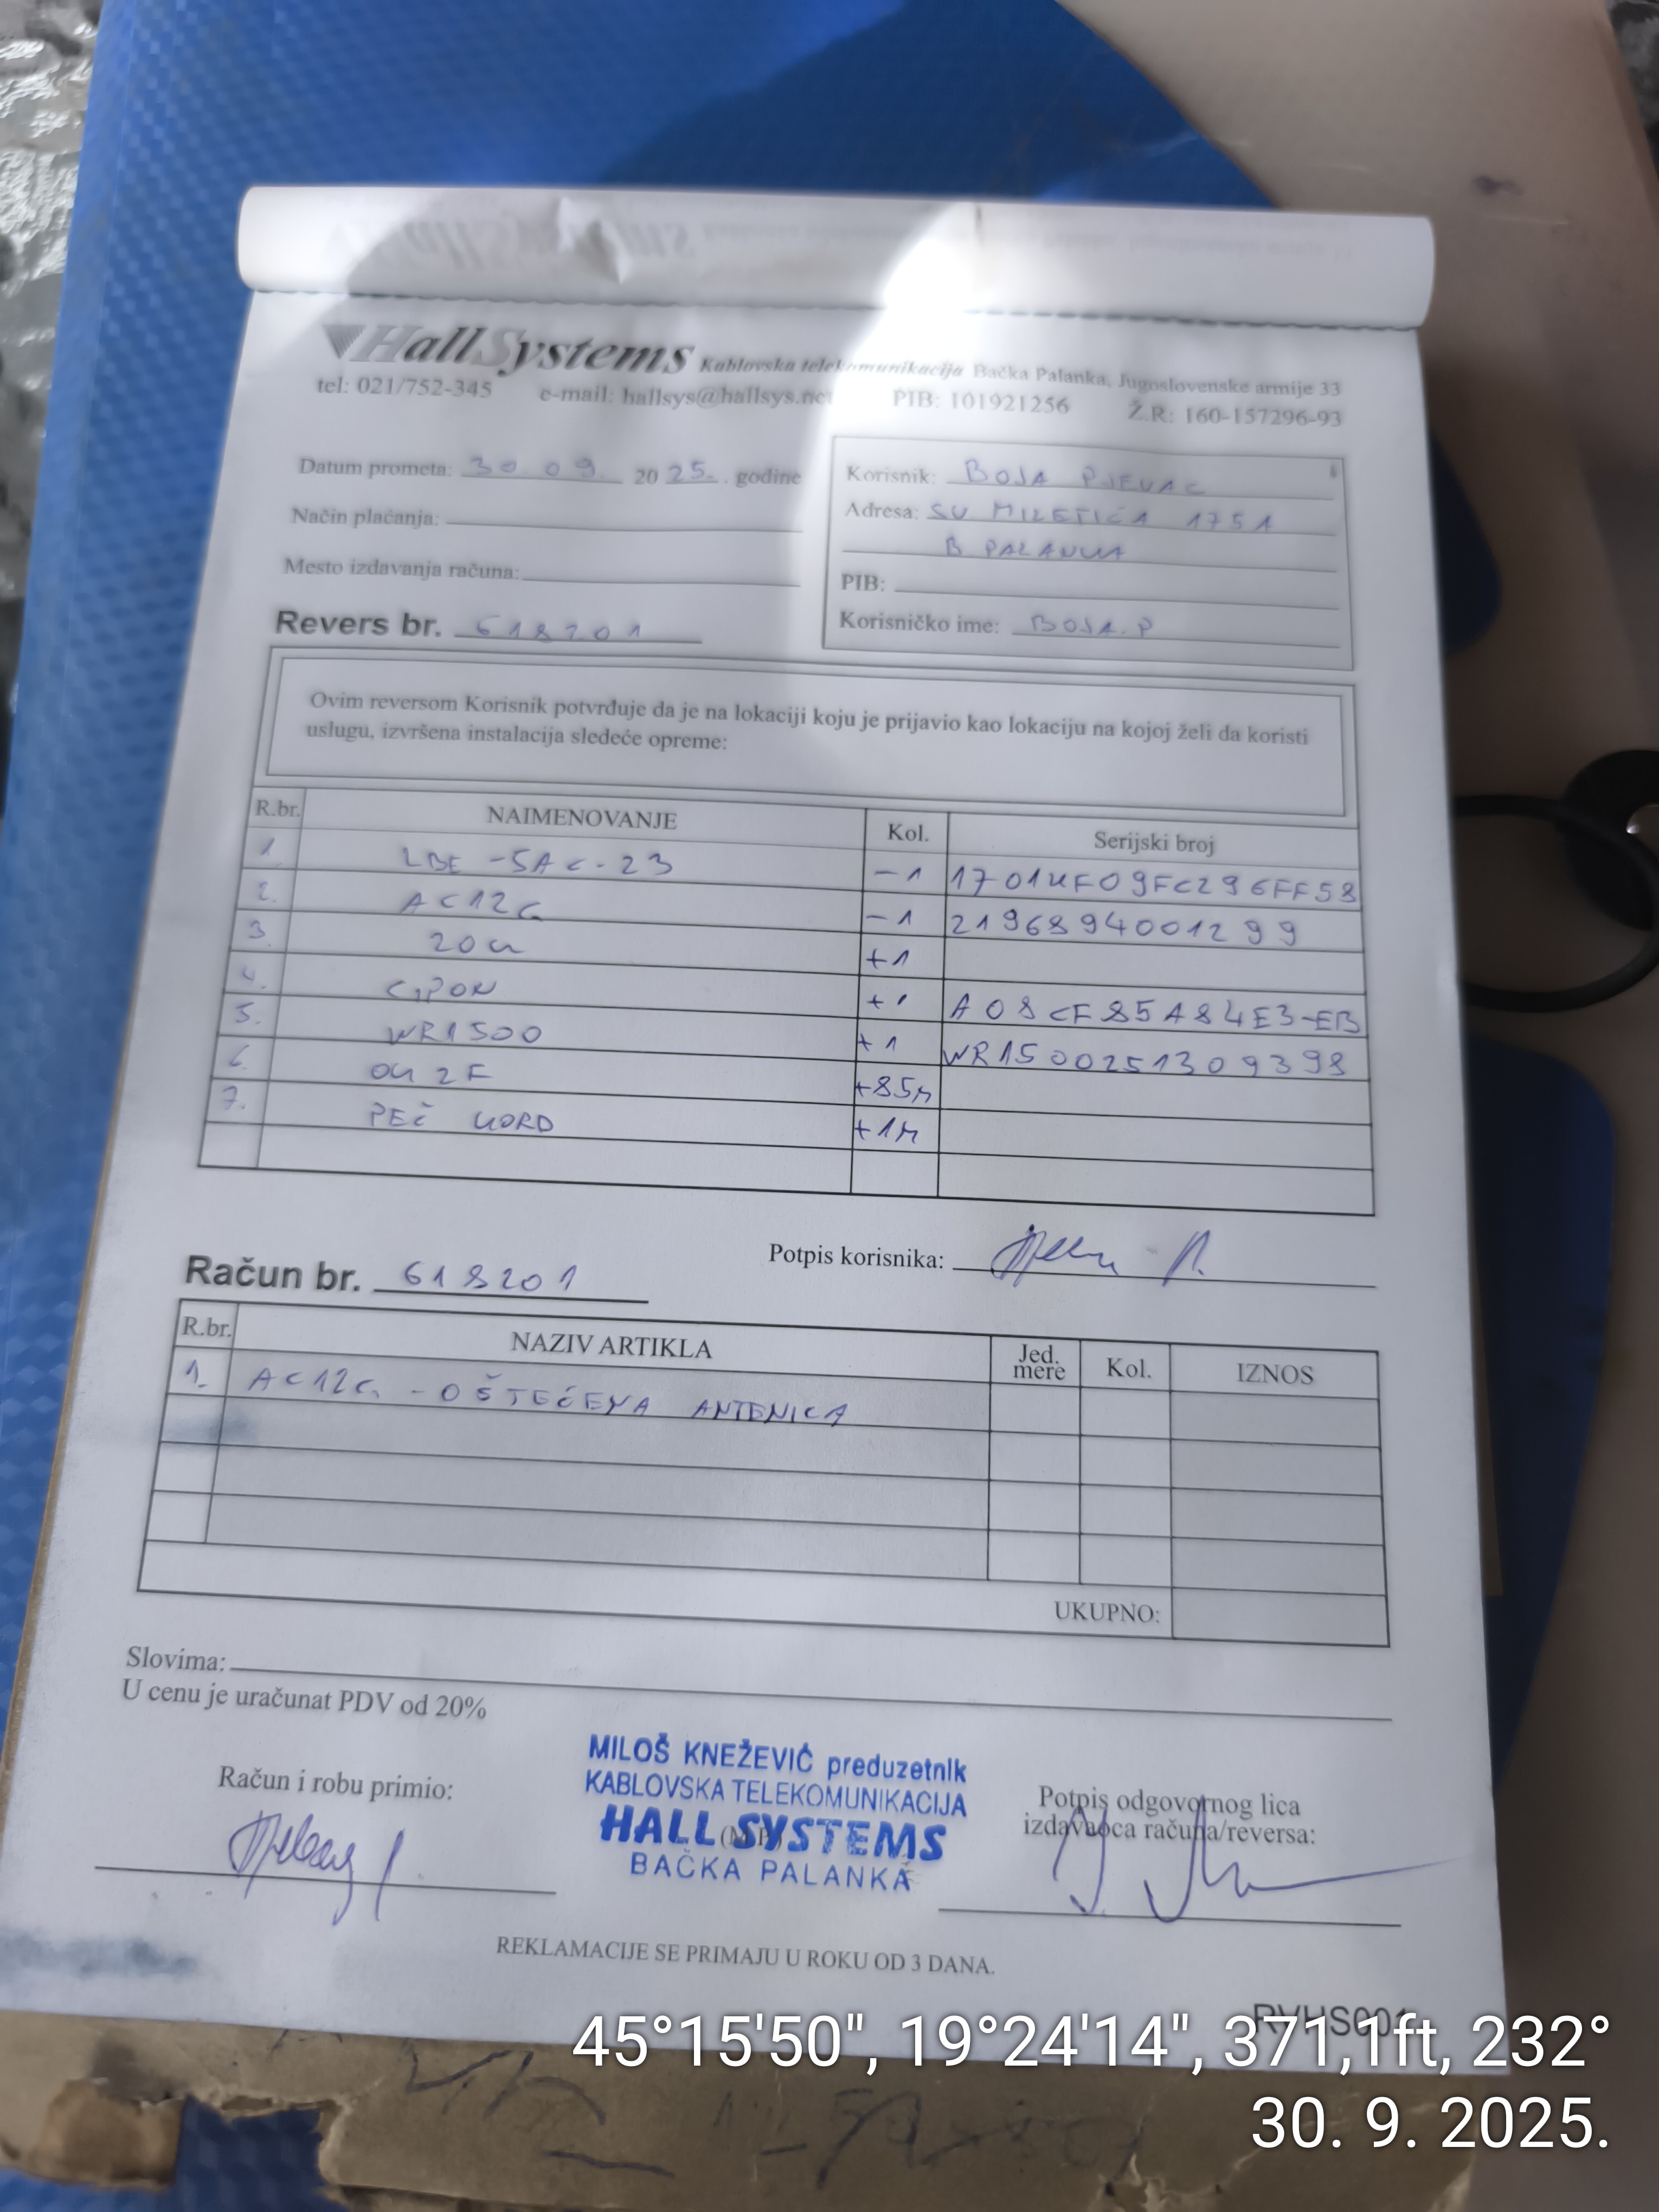 HallSystems Kablovska telekomunikacija Bačka Palanka, Jugoslovenske armije 33
tel: 021/752-345 e-mail: hallsys@hallsys.net PIB: 101921256 Ž.R: 160-157296-93
Datum prometa: 30 09. 2025. godine
Način plaćanja:
Mesto izdavanja računa:
Revers br. 618201
Korisnik: BOJA PJEVAC
Adresa: SV MILETIĆA 175A
B PALANKA
PIB:
Korisničko ime: BOJA.P
Ovim reversom Korisnik potvrđuje da je na lokaciji koju je prijavio kao lokaciju na kojoj želi da koristi
uslugu, izvršena instalacija sledeće opreme:
R.br. NAIMENOVANJE Kol. Serijski broj
1. LBE -5AC-23 -1 1701KF09FC296FF58
2. AC12G -1 2196894001299
3. +1
4. C,PON +1 A08CF85A84E3-EB
5. WR1500 +1 WR1500251309398
6. OK 2F +85M
7. PEČ KORD +1M
Potpis korisnika:
Račun br. 618201
R.br. NAZIV ARTIKLA Jed. mere Kol. IZNOS
1. AC12G - OŠTEĆENA ANTENICA
UKUPNO:
Slovima:
U cenu je uračunat PDV od 20%
Račun i robu primio:
MILOŠ KNEŽEVIĆ preduzetnik
KABLOVSKA TELEKOMUNIKACIJA
HALL SYSTEMS
(M.P.)
BAČKA PALANKA
Potpis odgovornog lica
izdavaoca računa/reversa:
REKLAMACIJE SE PRIMAJU U ROKU OD 3 DANA.
RVHS001
45°15'50", 19°24'14", 371,1ft, 232°
30. 9. 2025.